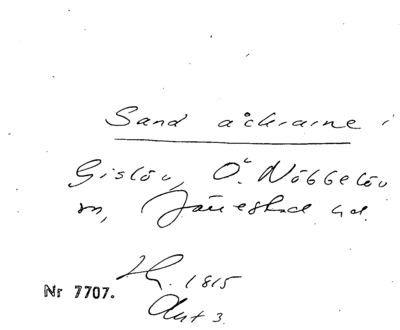 Sand åckrarne i
Gislöv, Ö. Nöbbelöv
m, Järrestad hd.
1815
Akt 3.
Nr 7707.